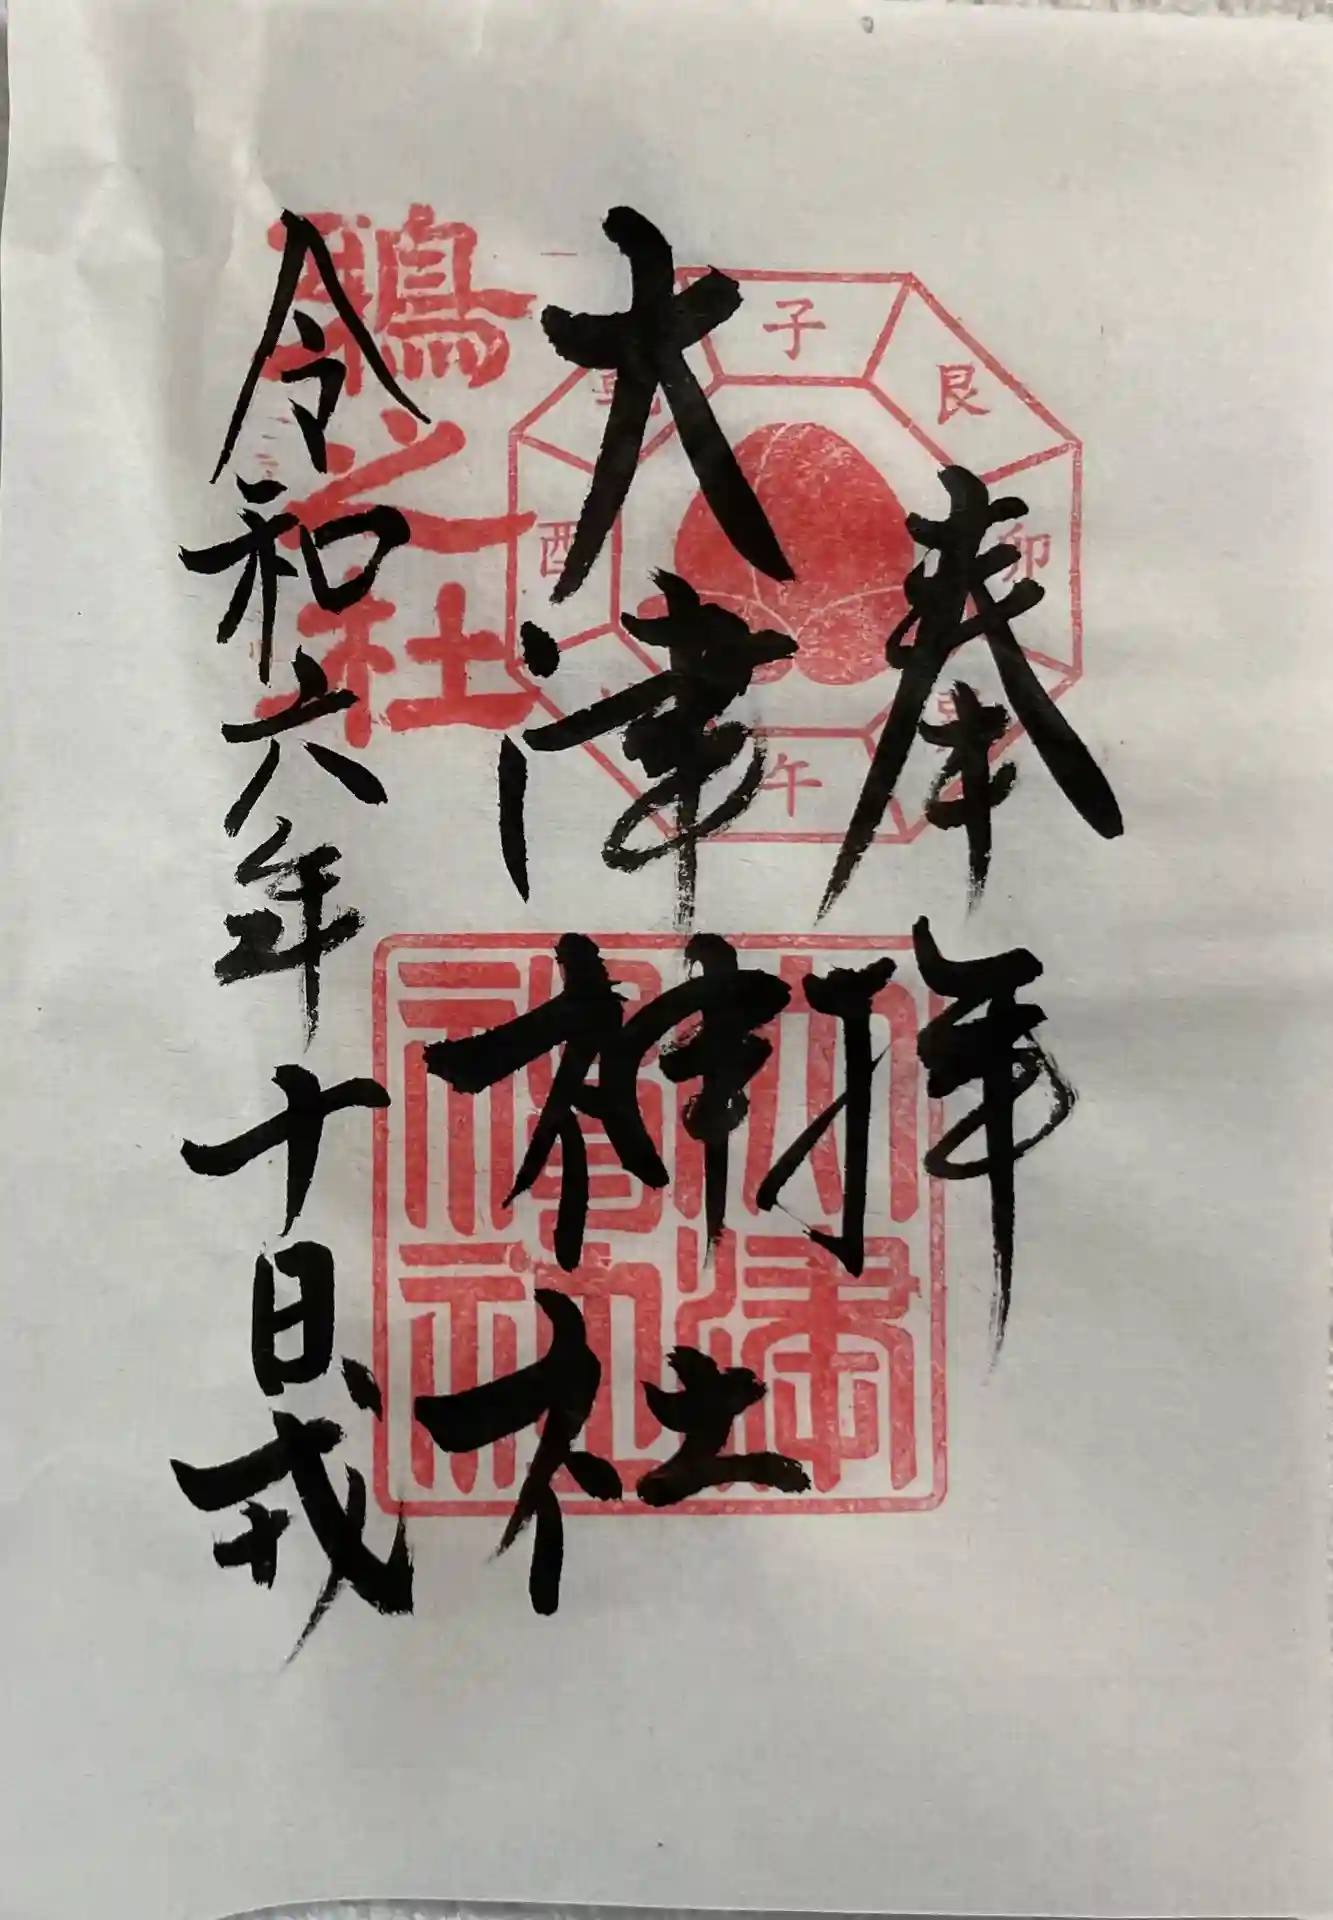 奉拝
子
艮
卯
巽
午
酉
乾
大津神社
大津
神社
之社
令和六年十日戎